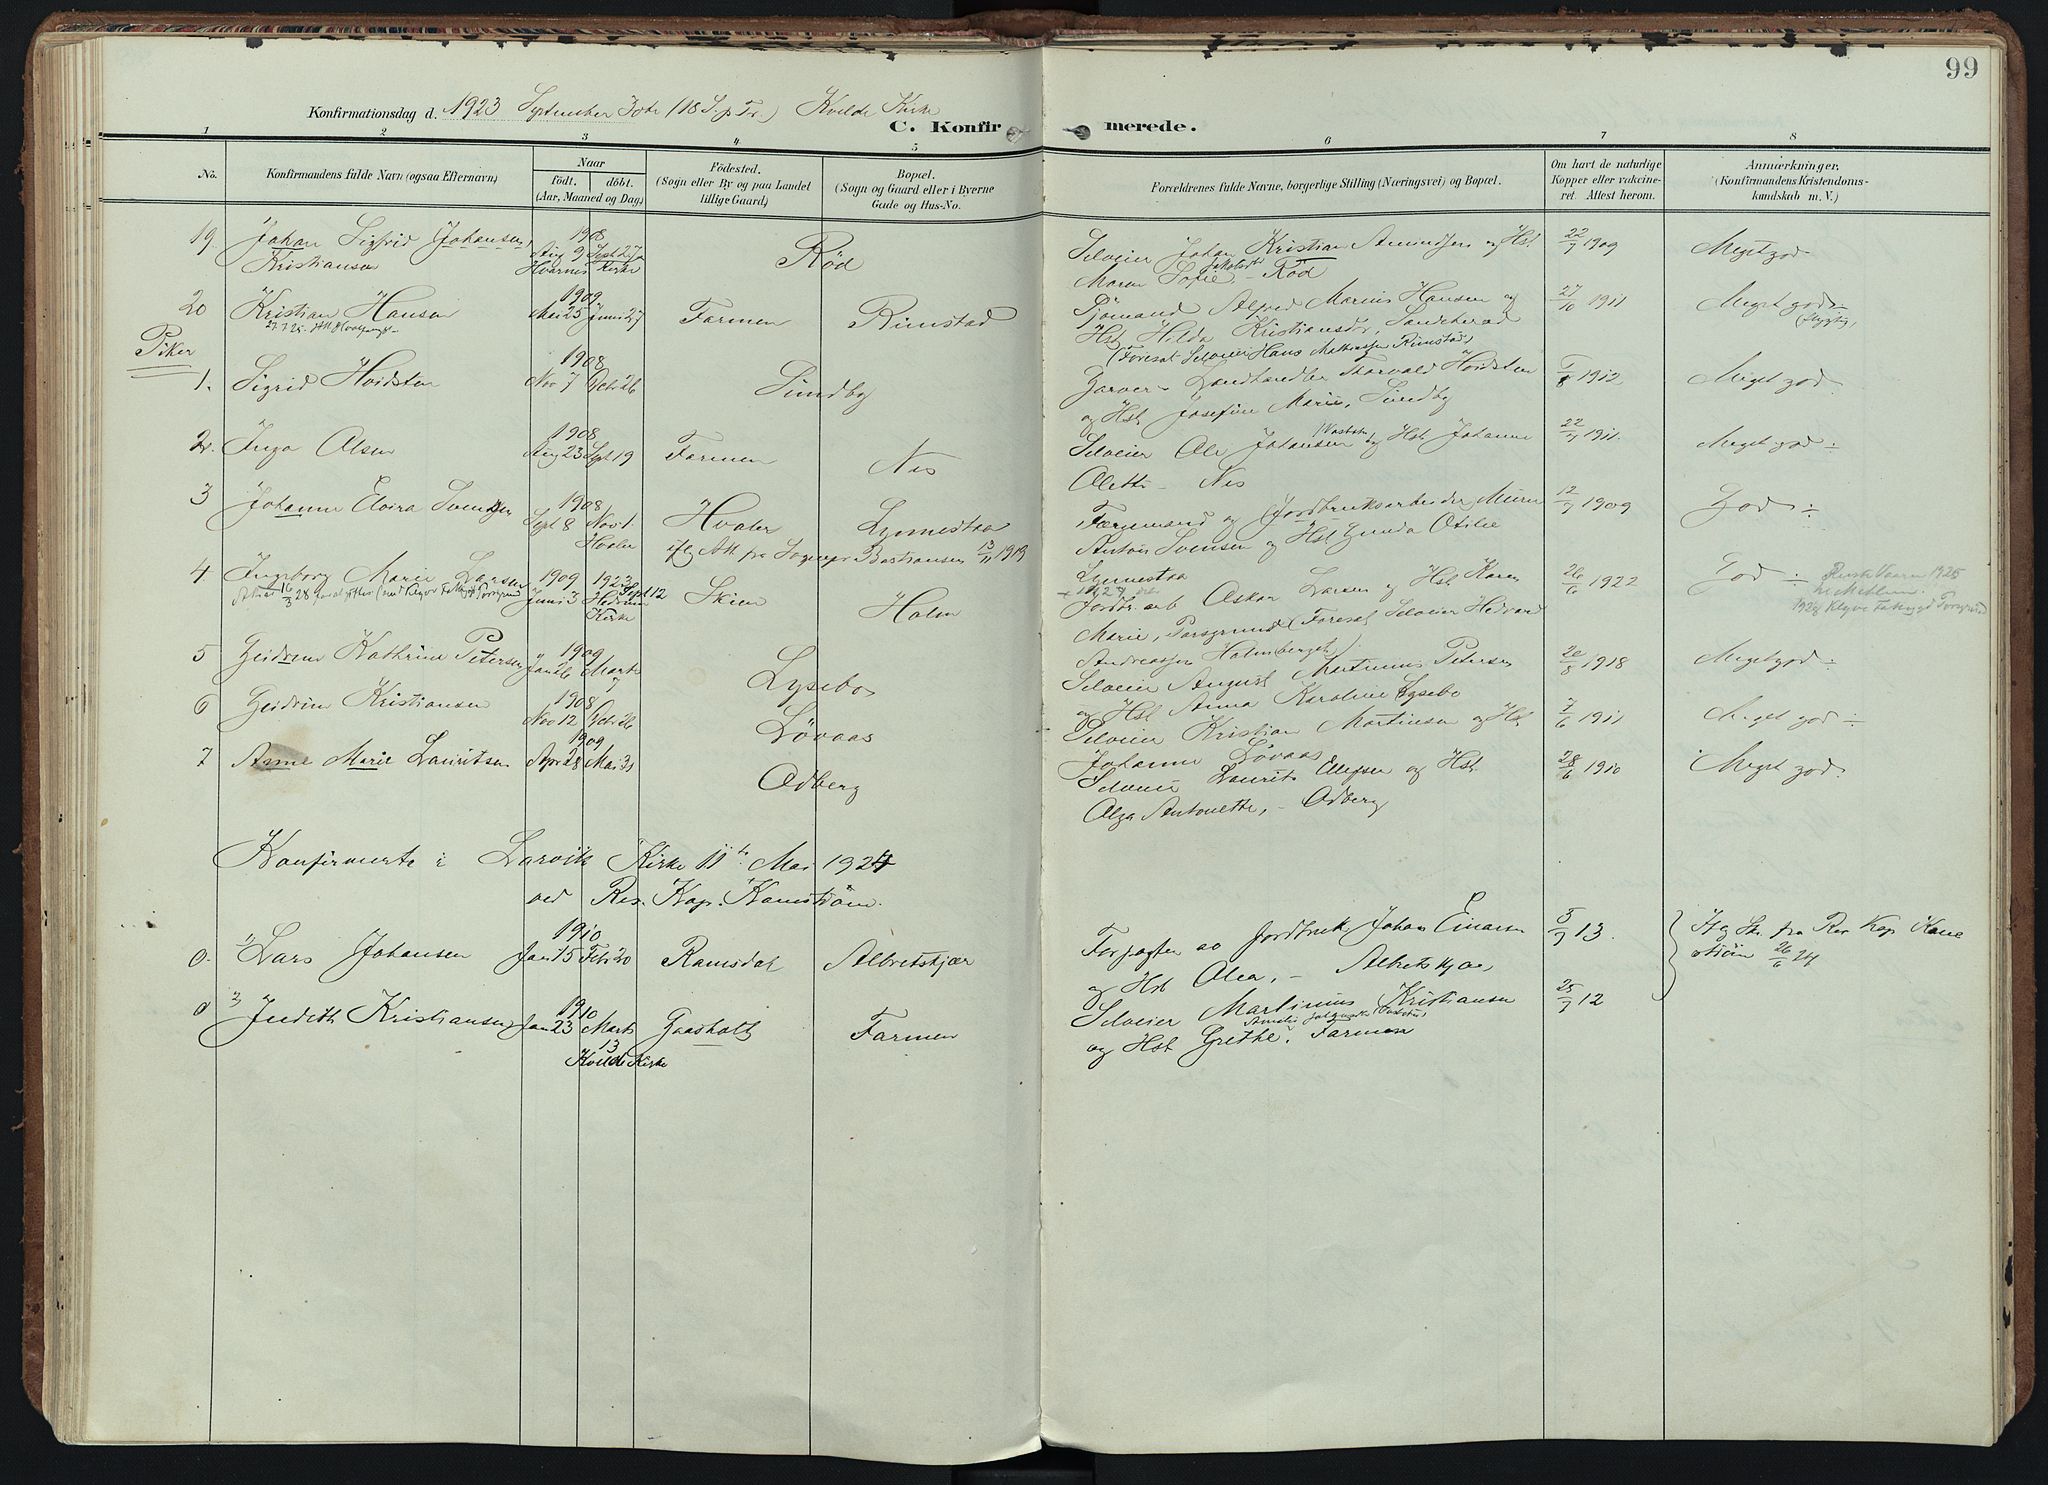 99
Konfirmationsdag d. 1923 September 30te (18 S. p Tr.) Kvelde Kirke
C. Konfirmerede.
1 2 3 4 5 6 7 8
No.
Konfirmandens fulde Navn (ogsaa Efternavn)
Naar
födt. döbt.
(Aar, Maaned og Dag)
Födested.
(Sogn eller By og paa Landet
tillige Gaard)
Bopæl.
(Sogn og Gaard eller i Byerne
Gade og Hus-No.
Forældrenes fulde Navne, borgerlige Stilling (Næringsvei) og Bopæl.
Om havt de naturlige
Kopper eller vakcine-
ret. Attest herom.
Anmærkninger.
(Konfirmandens Kristendoms-
kundskab m. V.)
19. Johan Sigfrid Johansen
Kristiansen
1908
Aug 9 Sept 27
Hvarnes Kirke
Röd
Selveier Johan Kristian Amundsen og Hst
Maren Sofie Jakobsdtr – Röd
22/7 1909
Meget god
20 Kristian Hansen
1909
Mai 25 Juni 27
Farmen
Rimstad
Sjömand Alfred Marius Hansen og
Hst Hilda Kristiansdtr, Sandeherad
(Foresat Selveier Hans Mathiassen Rimstad)
27/10 1911
Meget god
Piker
1. Sigrid Hvidsten
1908
Nov 7 Dcbr 26
Sundby
Garver – Landhandler Thorvald Hvidsten
og Hst Josefine Marie, Sundby
1/8 1912
Meget god
2. Inga Olsen
1908
Aug 23 Sept 19
Farmen
Nes
Selveier Ole Johansen og Hst Johanne
Olette – Nes
22/7 1911.
Meget god ÷
3 Johanne Elvira Svendsen
1908
Sept 8 Nov 1.
Hvaler
Hvaler
Lynnestaa
ifl Att. fra Sognepr Bastiansen 13/11 1913
Færgemand og Jordbruksarbeider Murer
Anton Svensen og Hst Gunda Otilie
Lynnestaa
12/7 1909
God ÷
4 Ingeborg Marie Larsen
1909 1923
Juni 3 Sept 12
Hedrum
Kirke
Skien
Holm
Jordbr. arb Oskar Larsen og Hst Karen
Marie, Porsgrund (Foresat Selveier Hedvard
Andreassen Holmberget)
26/6 1922
God ÷
5 Gudrun Kathrine Petersen
1909
Jan 26 Marts
7
Lysebo
Selveier August Martinius Petersen
og Hst Anna Karoline Lysebo
20/8 1918
Meget god ÷
6 Gudrun Kristiansen
1908
Nov 12 Dcbr 26
Lövaas
Selveier Kristian Martinsen og Hst
Johanne Lövaas
7/6 1911
Meget god ÷
7 Anne Marie Lauritsen
1909
Apr 28 Mai 31
Odberg
Selveier Laurits Ellefsen og Hst
Olga Antonette, – Odberg
28/6 1910
Meget god.
Konfirmerte i Larvik Kirke 11te Mai 1924
ved Res. Kap. Kamström.
0. 1) Lars Johansen
1910
Jan 15 Febr 20
Ramsdal
Albretskjær
Forpagter av jordbruk Johan Einarsen
og Hst Olea, – Albretskjær
5/7 13.
0 3 Judith Kristiansen
1910
Jan 23 Marts
13
Kvelde Kirke
Gaasholt
Farmen
Selveier Martinius Kristiansen
og Hst Grethe, Farmen
25/7 12